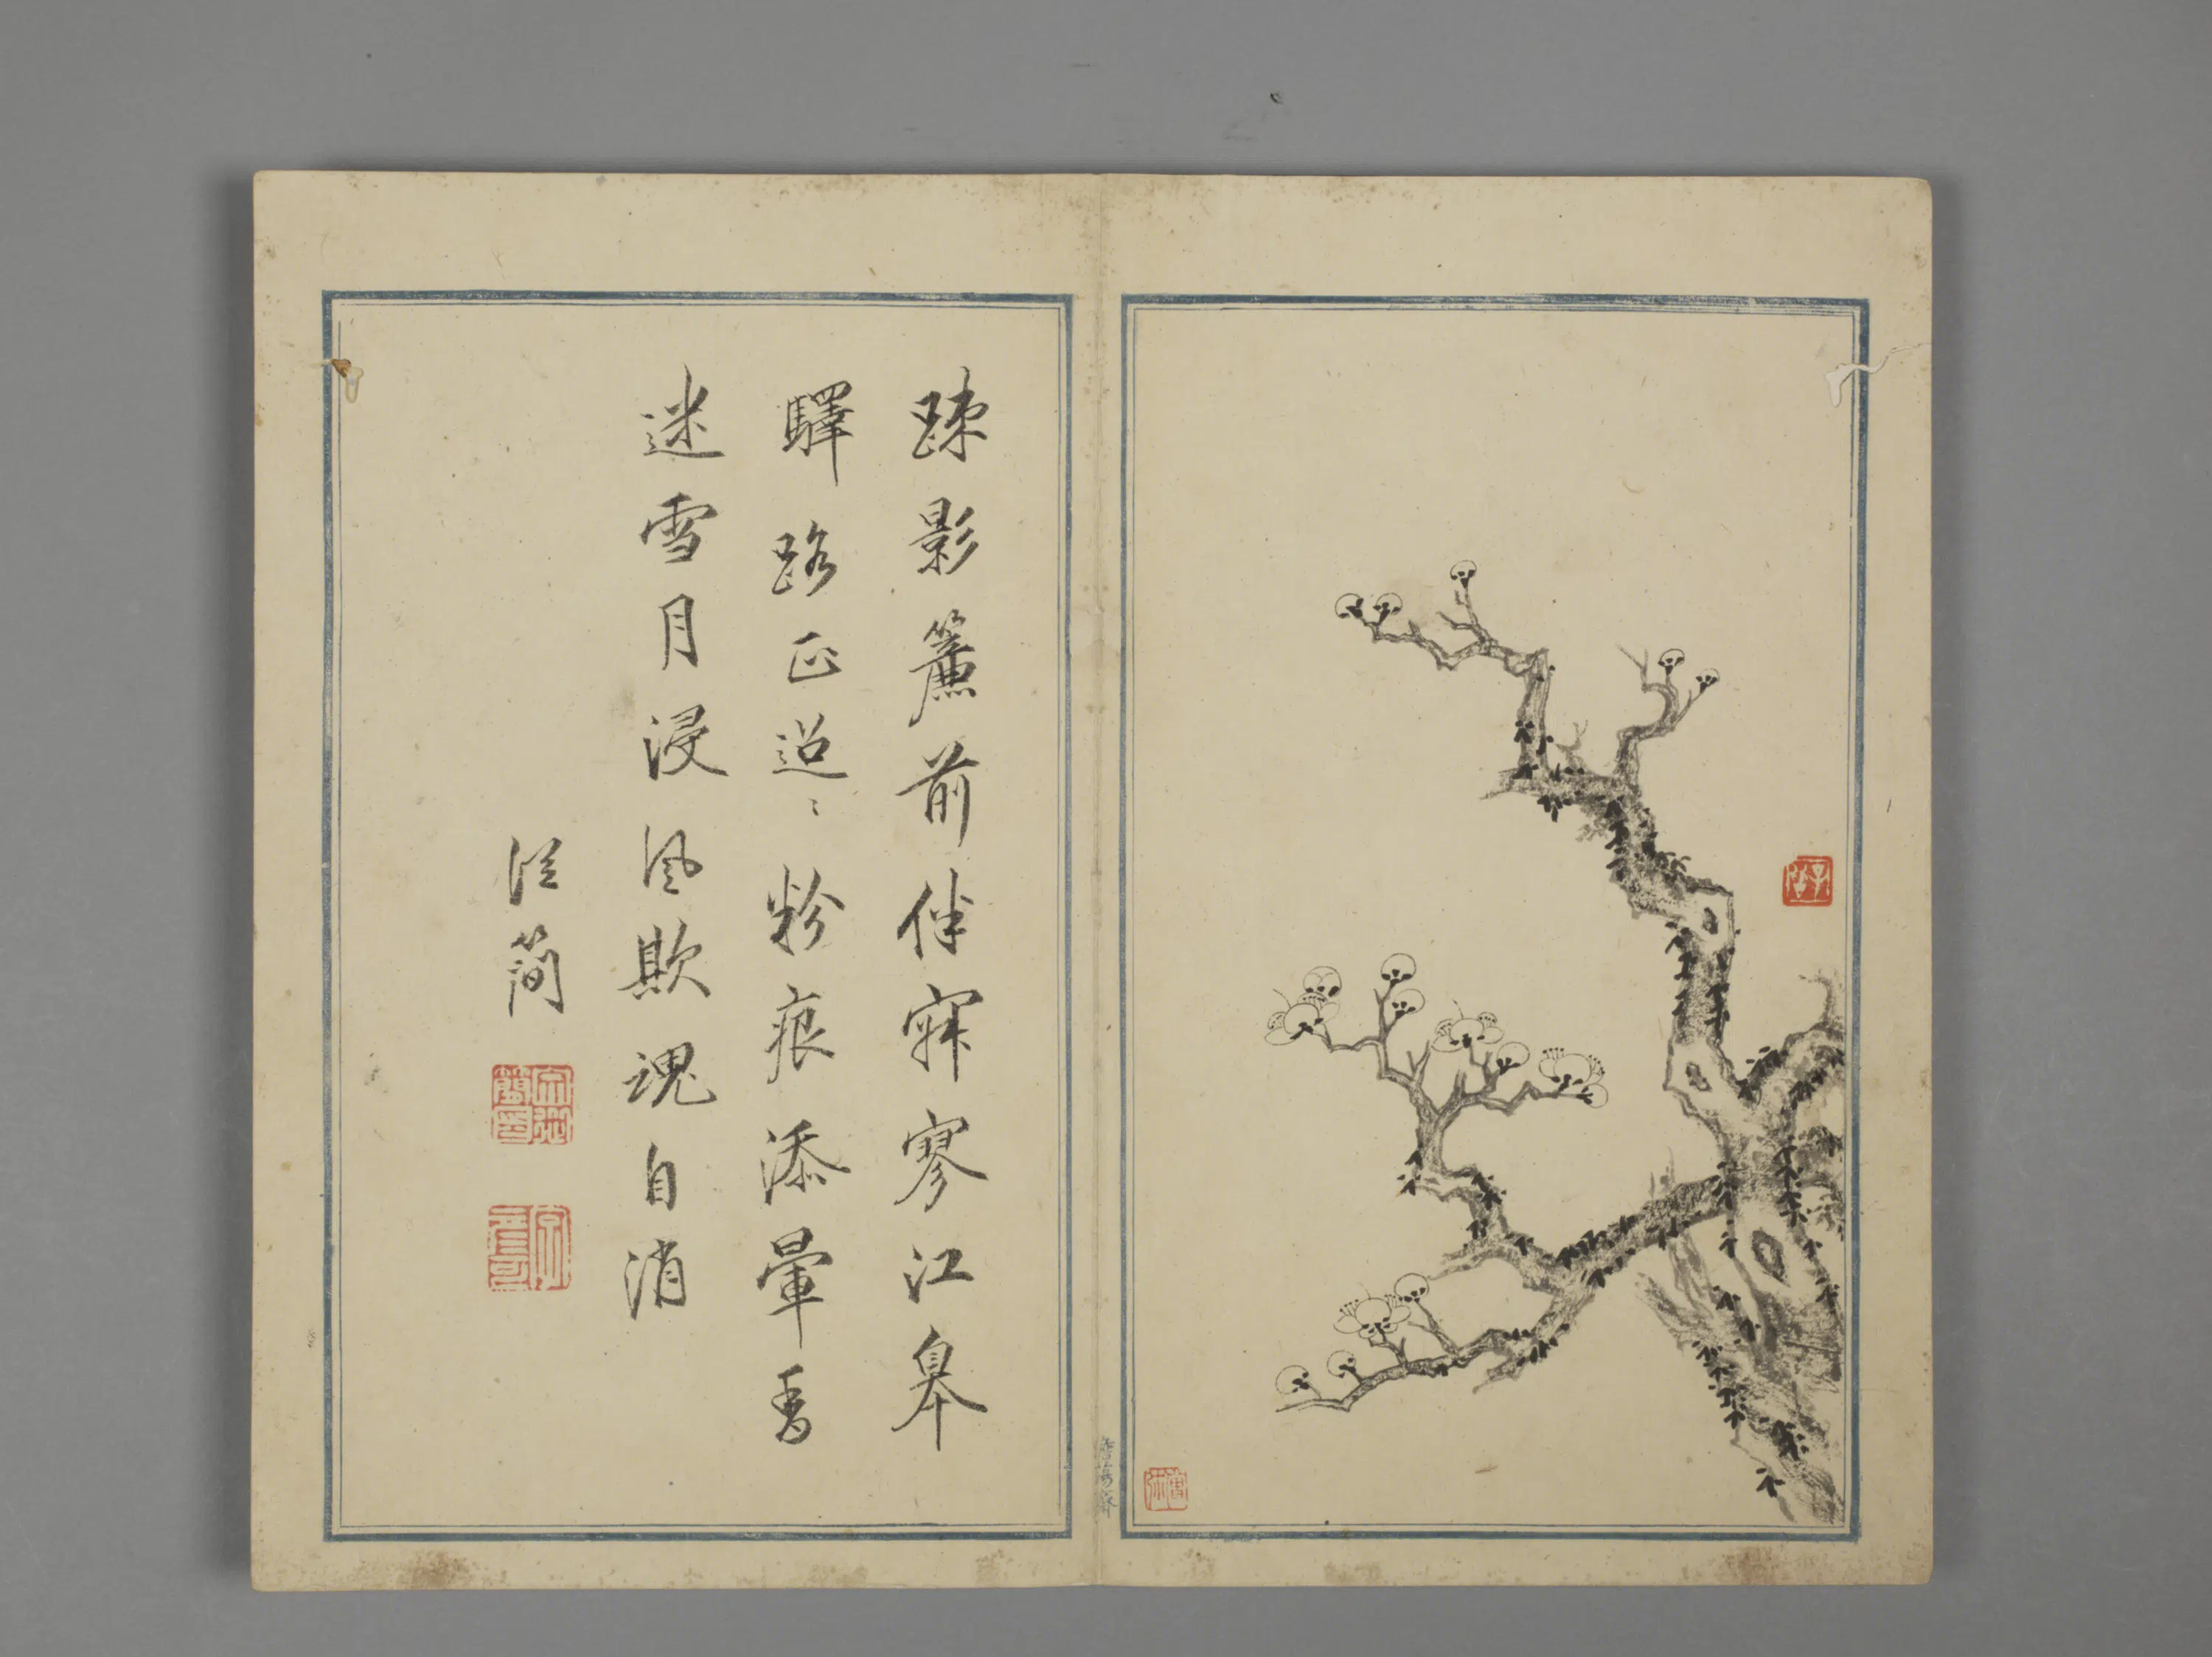 踈影簾前伴寂寥江皋
驛路正迢〻粉痕添暈香
迷雪月浸風欺魂自消
從簡